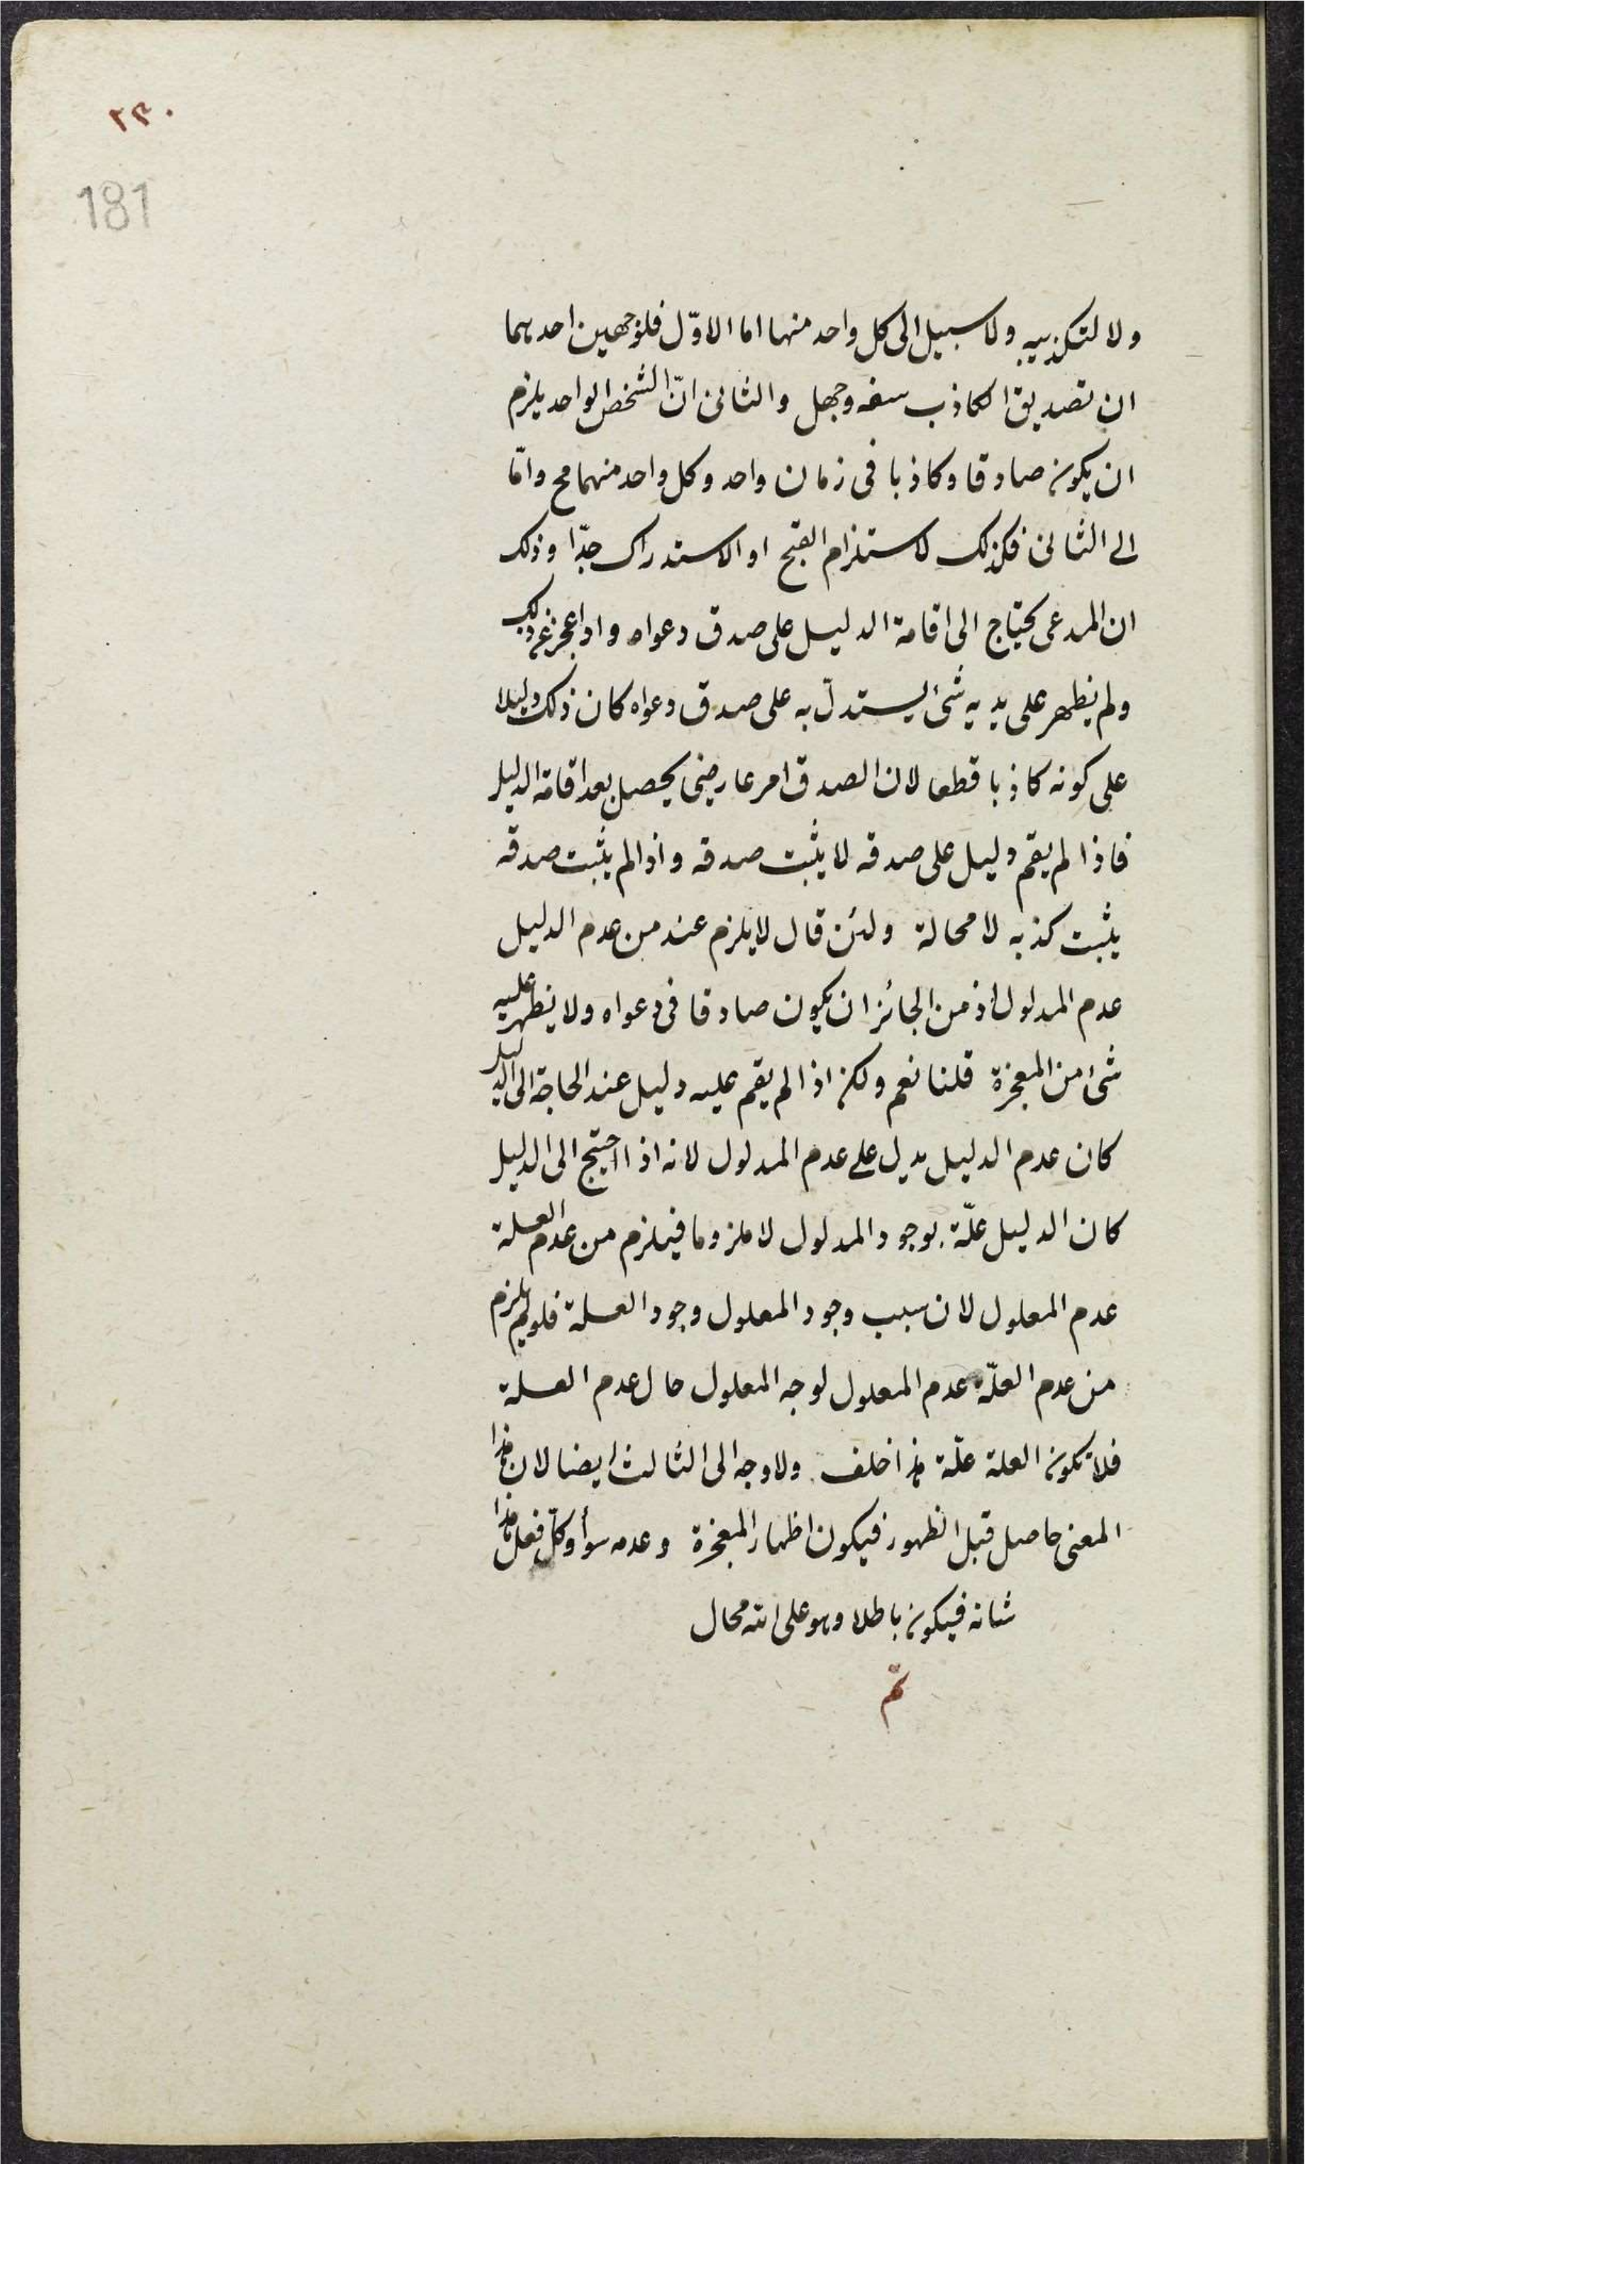 ٢٣٠
181
ولا لتكذيبه ولا سبيل الى كل واحد منها اما الاوّل فلوجهين احدهما
ان تصديق الكاذب سفه وجهل والثانى انّ الشخص الواحد يلزم
ان يكون صادقا وكاذبا فى زمان واحد وكل واحد منهما مح وامّا
الى الثانى فكذلك لاستلزام القبح او الاستدراك جدّا وذلك
ان المدعى يحتاج الى اقامة الدليل على صدق دعواه واذا عجز عن ذلك
ولم يظهر على يديه شئ يستدلّ به على صدق دعواه كان ذلك دليلا
على كونه كاذبا قطعا لان الصدق امر عارضى يحصل بعد اقامة الدليل
فاذا لم يقم دليل على صدقه لا يثبت صدقه واذا لم يثبت صدقه
يثبت كذبه لا محالة ولئن قال لا يلزم عند من عدم الدليل
عدم المدلول اذ من الجائز ان يكون صادقا فى دعواه ولا يظهر عليه
شئ من المعجزة قلنا نعم ولكن اذا لم يقم عليه دليل عند الحاجة الى الدليل
كان عدم الدليل يدل على عدم المدلول لانه اذا احتيج الى الدليل
كان الدليل علّة بوجود المدلول لا ملزوما فيلزم من عدم العلة
عدم المعلول لان سبب وجود المعلول وجود العلة فلو لم يلزم
من عدم العلّة عدم المعلول لوجد المعلول حال عدم العلة
فلا تكون العلة علّة هذا خلف ولا وجه الى الثالث ايضا لان هذا
المعنى حاصل قبل الظهور فيكون اظهار المعجزة وعدمه سوأ وكلّ فعل هذا
شانه فيكون باطلا وهو على الله محال
تمّ